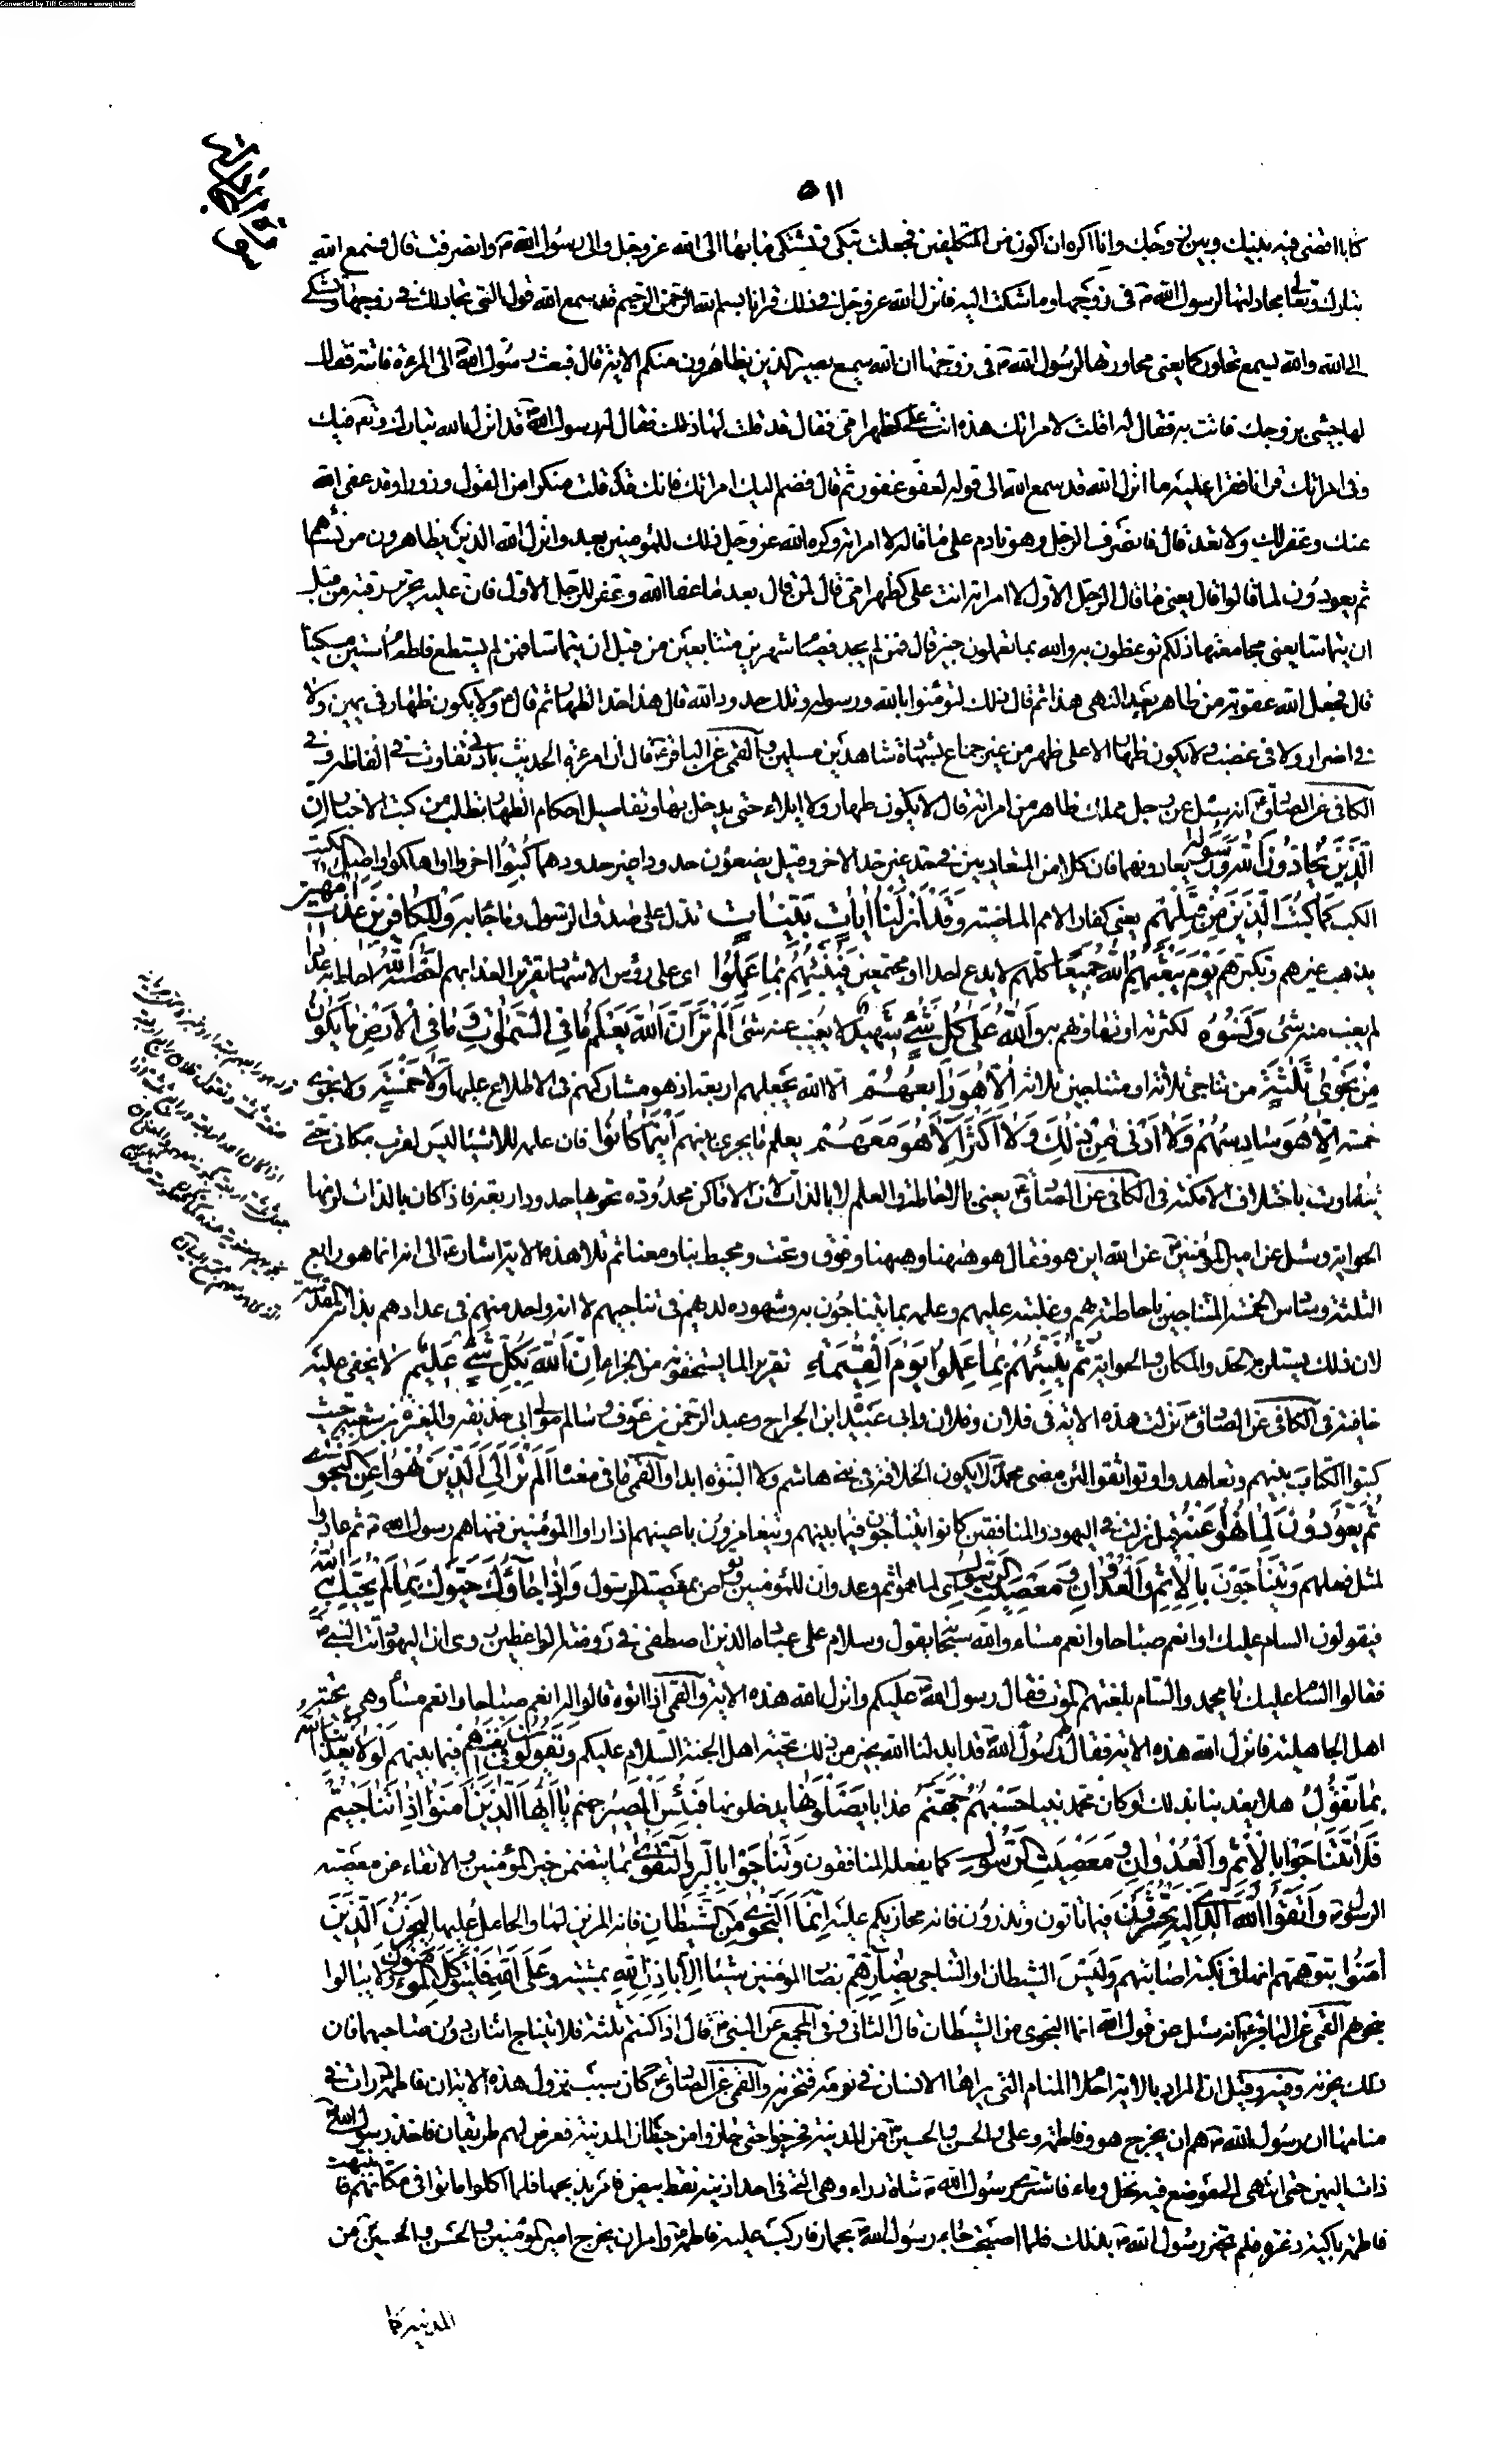 Converted by Tiff Combine - unregistered
٥١١
سورة المجادلة
كتابا اقضى فيه بينك وبين زوجك وانا اكره ان اكون من المتكلفين فجعلت تبكى وتشتكى ما بها الى الله عز وجل والى رسول الله ص وانصرفت قال فسمع الله
تبارك وتعالى مجادلتها لرسول الله ص فى زوجها وما شكت اليه فانزل الله عز وجل فى ذلك قرانا بسم الله الرحمن الرحيم قد سمع الله قول التى تجادلك فى زوجها وتشتكى
الى الله والله يسمع تحاوركما يعنى محاورتها لرسول الله ص فى زوجها ان الله سميع بصير الذين يظاهرون منكم الاية قال فبعث رسول الله ص الى المرءة فاتته فقال
لها جيئى بزوجك فاتت به فقال له اقلت لامراتك هذه انت على كظهر امى فقال قد قلت لها ذلك فقال له رسول الله ص قد انزل الله تبارك وتعم فيك
وفى امراتك قرانا فقرا عليه ما انزل الله قد سمع الله الى قوله لعفو غفور ثم قال فضم اليك امراتك فانك قد قلت منكرا من القول وزورا وقد عفى الله
عنك وغفر لك ولا تعد قال فانصرف الرجل وهو نادم على ما قال لامراته وكره الله عز وجل ذلك للمؤمنين بعد وانزل الله الذين يظاهرون من نسائهم
ثم يعودون لما قالوا قال يعنى ما قال الرجل الاول لامراته انت على كظهر امى قال لمن قال بعد ما عفا الله وغفر للرجل الاول فان عليه تحرير رقبة من قبل
ان يتماسا يعنى مجامعتها ذلكم توعظون به والله بما تعملون خبير قال فمن لم يجد فصيام شهرين متتابعين من قبل ان يتماسا فمن لم يستطع فاطعام ستين مسكينا
قال فجعل الله عقوبة من ظاهر بعد النهى هذا ثم قال ذلك لتؤمنوا بالله ورسوله وتلك حدود الله قال هذا حد الظهار ثم قال ع ولا يكون ظهار فى يمين ولا
فى اضرار ولا فى غضب ولا يكون ظهار الا على طهر من غير جماع بشهادة شاهدين مسلمين والقمى عن الباقر ع قال ان امرءة الحديث بادنى تفاوت فى الفاظه وفى
الكافى عن الصادق ع انه سئل عن رجل مملك ظاهر من امراته قال لا يكون ظهار ولا ايلاء حتى يدخل بها وتفاصيل احكام الظهار تطلب من كتب الاخبار ان
الذين يحادون الله ورسوله يعادونهما فان كلا من المتعاديين فى حد غير حد الاخر وقيل يضعون حدودا غير حدودهما كبتوا اخزوا او اهلكوا واصل الكبت
الكب كما كبت الذين من قبلهم يعنى كفار الامم الماضية وقد انزلنا ايات بينات تدل على صدق الرسول وما جاء به وللكافرين عذاب مهين
يذهب عزهم وتكبرهم يوم يبعثهم الله جميعا كلهم لا يدع احدا او مجتمعين فينبئهم بما عملوا اى على رؤس الاشهاد تقريرا لعذابهم احصيه الله احاط به عددا
لم يغب منه شئ ونسوه لكثرته او تهاونهم به والله على كل شئ شهيد لا يغيب عنه شئ الم تر ان الله يعلم ما فى السموات وما فى الارض ما يكون
من نجوى ثلثة من تناجى ثلاثة او متناجين ثلاثة الا هو رابعهم الا الله يجعلهم اربعة اذ هو مشاركهم فى الاطلاع عليها ولا خمسة ولا نجوى
خمسة الا هو سادسهم ولا ادنى من ذلك ولا اكثر الا هو معهم يعلم ما يجرى بينهم اينما كانوا فان علمه للاشياء ليس لقرب مكانى حتى
يتفاوت باختلاف الامكنة فى الكافى عن الصادق ع يعنى بالاحاطة والعلم لا بالذات لان الاماكن محدودة تحويها حدود اربعة فاذا كان بالذات لزمها
الحواية وسئل عن امير المؤمنين ع عن الله اين هو فقال هو ههنا وههنا وفوق وتحت ومحيط بنا ومعنا ثم تلا هذه الاية اشارة الى انه انما هو رابع
الثلثة وسادس الخمسة المتناجين باحاطته بهم وغلبته عليهم وعلمه بما يتناجون به وشهوده لديهم فى تناجيهم لا انه واحد منهم فى عدادهم بذاته المقدسة
لان ذلك يستلزم الحد والمكان والحواية ثم ينبئهم بما عملوا يوم القيمة تقريرا لما يستحقونه من الجزاء ان الله بكل شئ عليم لا يخفى عليه
خافية فى الكافى عن الصادق ع نزلت هذه الاية فى فلان وفلان وابى عبيدة ابن الجراح وعبد الرحمن بن عوف وسالم مولى ابى حذيفة والمغيرة بن شعبة حيث
كتبوا الكتاب بينهم وتعاهدوا وتوافقوا لئن مضى محمد ص لا يكون الخلافة فى بنى هاشم ولا النبوة ابدا والقمى ما فى معناه الم تر الى الذين نهوا عن النجوى
ثم يعودون لما نهوا عنه قيل نزلت فى اليهود والمنافقين كانوا يتناجون فيما بينهم ويتغامزون باعينهم اذا راوا المؤمنين فنهاهم رسول الله ص ثم عادوا
لمثل فعلهم ويتناجون بالاثم والعدوان ومعصيت الرسول اى بما هو اثم وعدوان للمؤمنين وتواص بمعصية الرسول واذا جاؤك حيوك بما لم يحيك به الله
فيقولون السام عليك او انعم صباحا وانعم مساء والله سبحانه يقول وسلام على عباده الذين اصطفى فى روضة الواعظين روى ان اليهود اتت النبى ص
فقالوا السام عليك يا محمد والسام بلغتهم الموت فقال رسول الله ص عليكم وانزل الله هذه الاية والقمى اذا اتوه قالوا له انعم صباحا وانعم مساء وهى تحية
اهل الجاهلية فانزل الله هذه الاية فقال لهم رسول الله ص قد ابدلنا الله بخير من ذلك تحية اهل الجنة السلام عليكم ويقولون فى انفسهم فيما بينهم لولا يعذبنا الله
بما نقول هلا يعذبنا بذلك لو كان محمد نبيا حسبهم جهنم عذابا يصلونها يدخلونها فبئس المصير جهنم يا ايها الذين امنوا اذا تناجيتم
فلا تتناجوا بالاثم والعدوان ومعصيت الرسول كما يفعله المنافقون وتناجوا بالبر والتقوى بما يتضمن خير المؤمنين والاتقاء عن معصية
الرسول ص واتقوا الله الذى اليه تحشرون فيما تاتون وتذرون فانه مجازيكم عليه انما النجوى من الشيطان فانه المزين لها والحامل عليها ليحزن الذين
امنوا بتوهمهم انها فى نكبة اصابتهم وليس الشيطان والتناجى بضارهم بضار المؤمنين شيئا الا باذن الله بمشيته وعلى الله فليتوكل المؤمنون ولا يبالوا
بنجواهم القمى عن الباقر ع انه سئل عن قول الله انما النجوى من الشيطان قال الثانى وفى المجمع عن النبى ص قال اذا كنتم ثلثة فلا يتناج اثنان دون صاحبهما فان
ذلك يحزنه وفيه وقيل ان المراد بالاية احلام المنام التى يراها الانسان فى نومه فتحزنه والقمى عن الصادق ع كان سبب نزول هذه الاية ان فاطمة ع رات فى
منامها ان رسول الله ص هم ان يخرج هو وفاطمة وعلى والحسن والحسين ع من المدينة فخرجوا حتى جازوا من حيطان المدينة فعرض لهم طريقان فاخذ رسول الله ص
ذات اليمين حتى انتهى الى موضع فيه نخل وماء فاشترى رسول الله ص شاة درءاء وهى التى فى احد اذنيها نقط بيض فامر بذبحها فلما اكلوا ماتوا فى مكانهم فانتبهت
فاطمة باكية ذعرة فلم تخبر رسول الله ص بذلك فلما اصبحت جاء رسول الله ص بحمار فاركب عليه فاطمة ع وامر ان يخرج امير المؤمنين والحسن والحسين ع من
المدينة كما